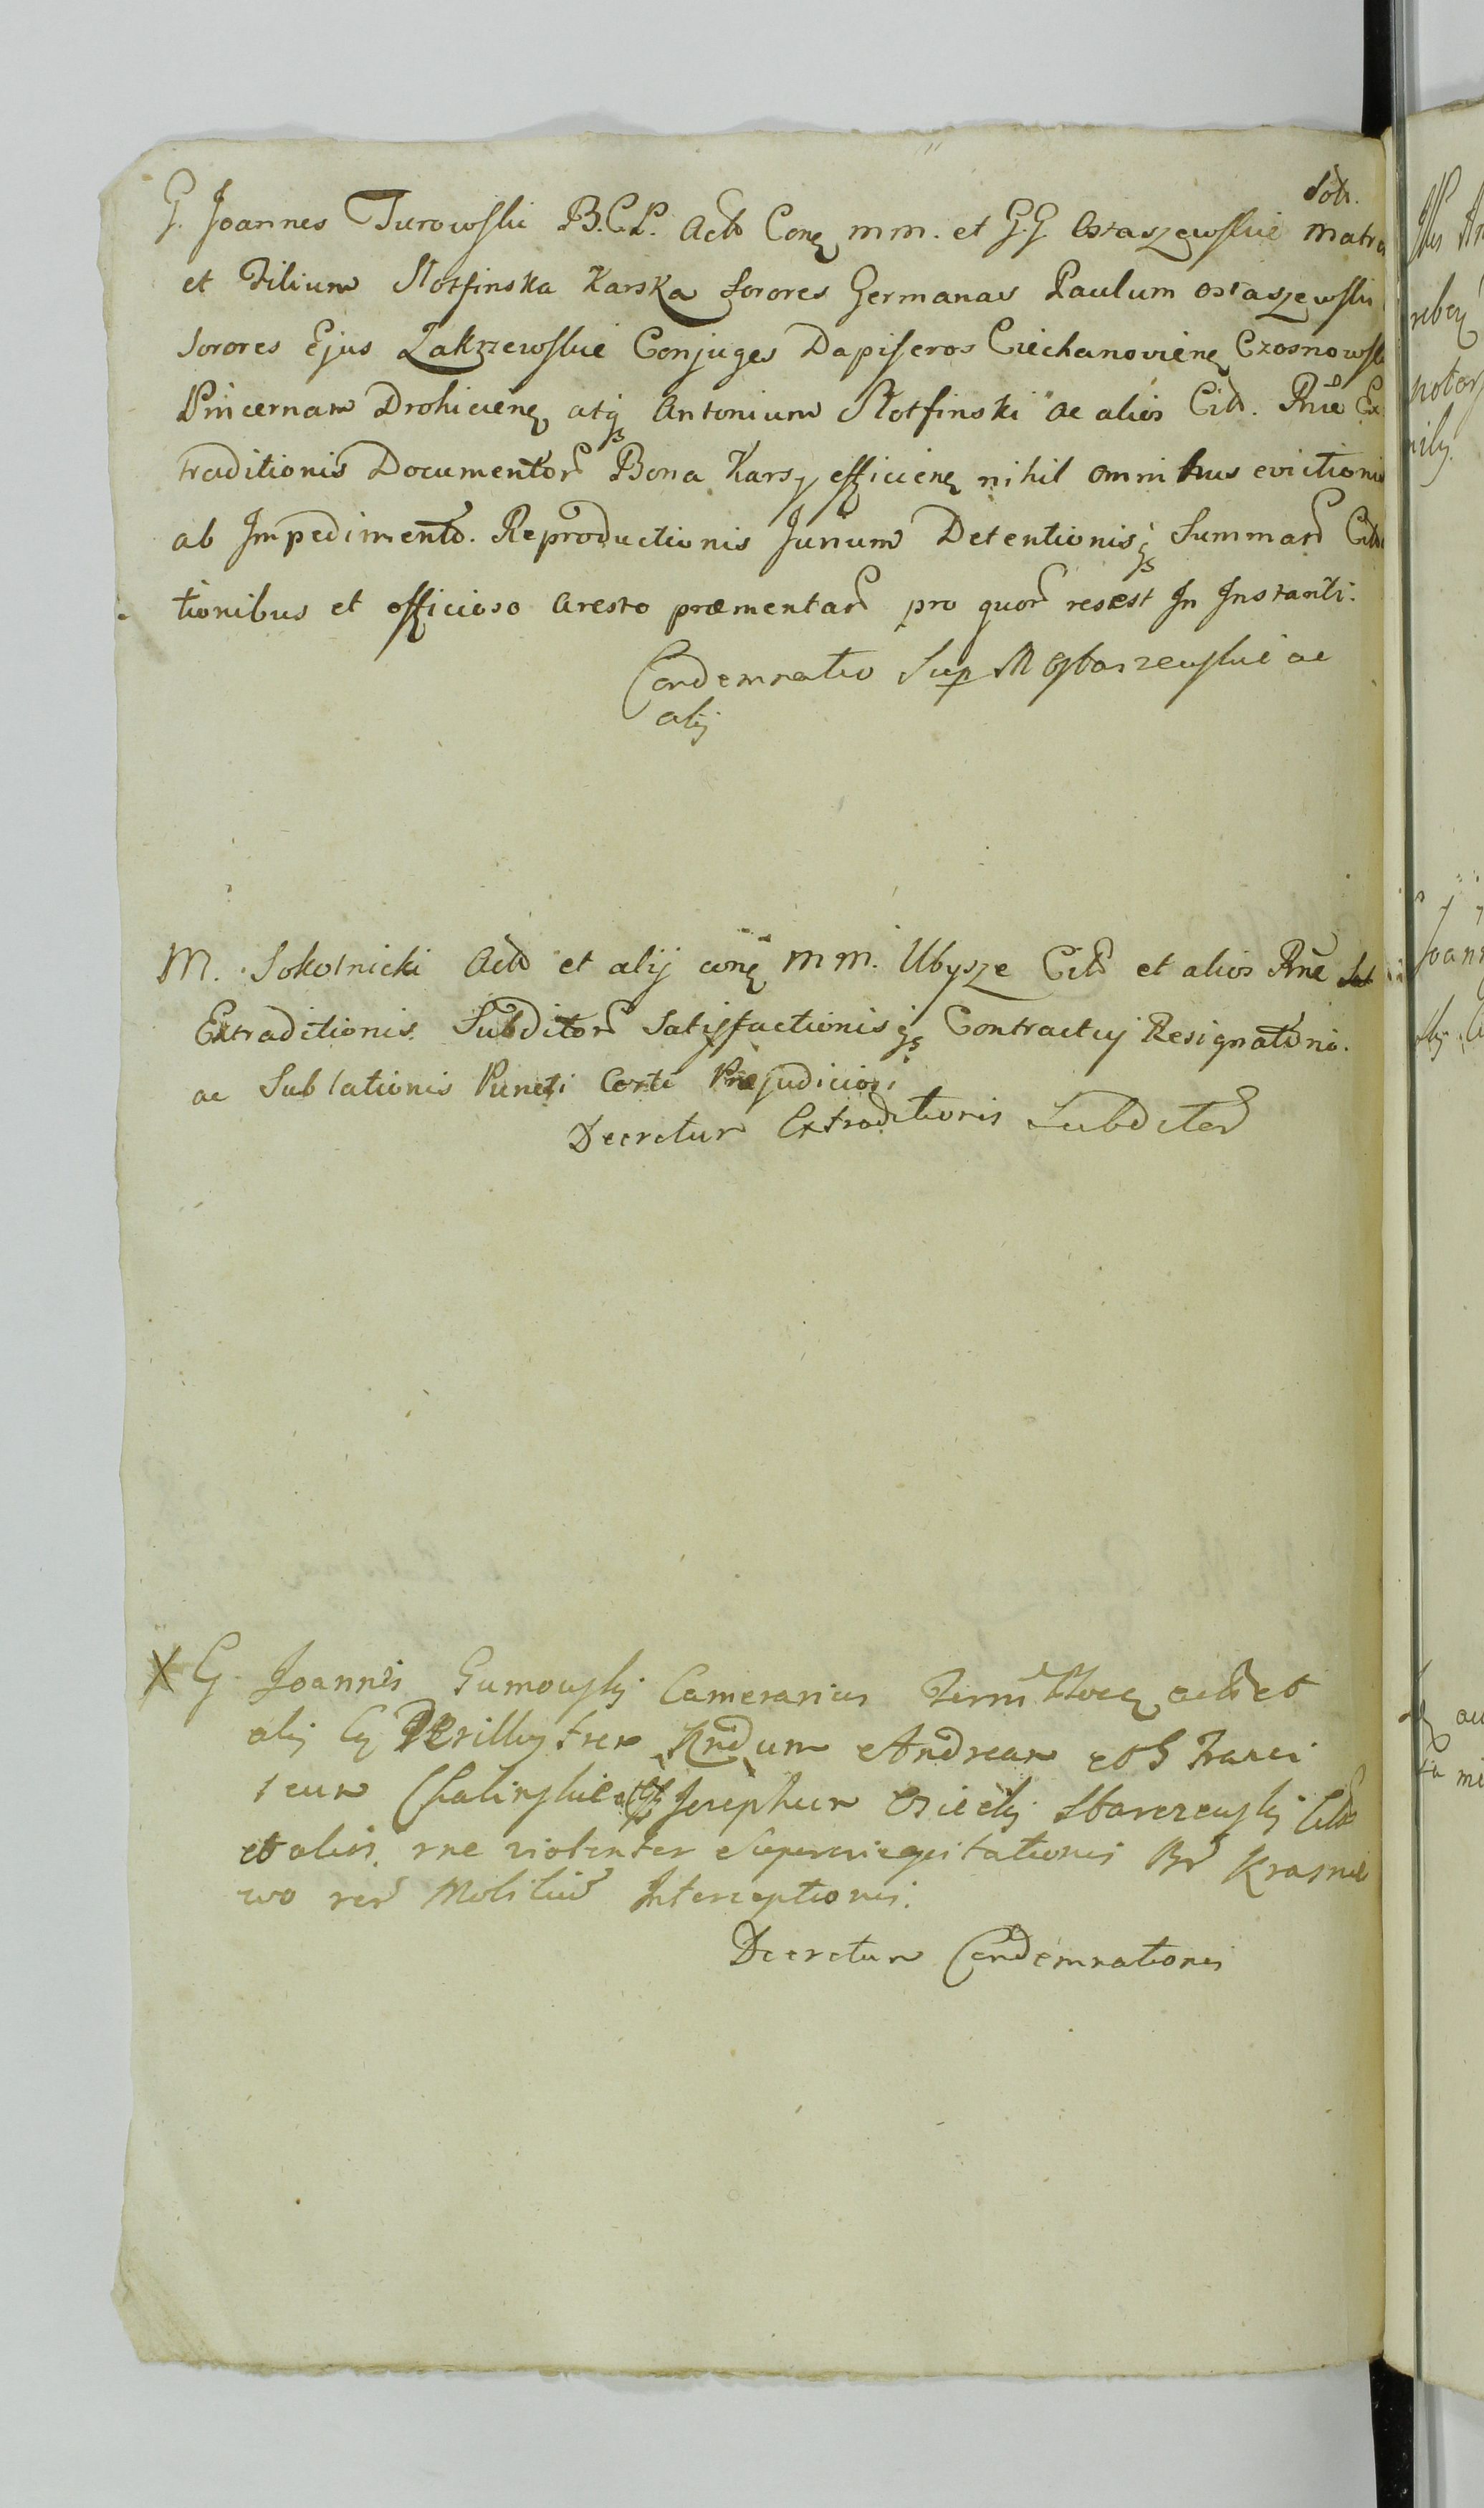 Sół.
G. Joannes Turowskie B.C.P. Actō Conę mm. et G.G Ostaszewskie Matre
et Filium Słotfinska Karska Sorores Germanas Paulum Ostaszewski
Sorores Ejus Zakrzewskie Conjuges Dapiferos Ciechanovienę Czosnowsk
Pincernam Drohicienę atq3 Antonium Słotfinski ac alios Citō. Rnē Ex
traditionis Documentor Bona Karsy efficienę nihil omnibus evictionis
ab Impedimentō. Reproductionis Jurium Detentionisq3 Summar Cita
tionibus et officioso Aresto præmentar pro quor res est In Instanti.
Condemnatio Sup M Ostaszewskie ac
alij
M. Sokolnicki Actō et alij conę mm. Ubysze Citō et alios Rne
Extraditionis. Subditor Satisfactionisq3 Contractuj Resignatōnis.
ac Sublationis Puncti Certi Præjudiciosi
Decretum Extraditionis Subditor
X G. Joannes Gumowskj Camerarius Plocę actō et
alij Perillustrem Rndum Andream et G Franci
scum Chalinskie Josephum citō
et alios rne violenter Br Krasnie
wo rer Mobiliū Interceptionis.
Decretum Condemnationis